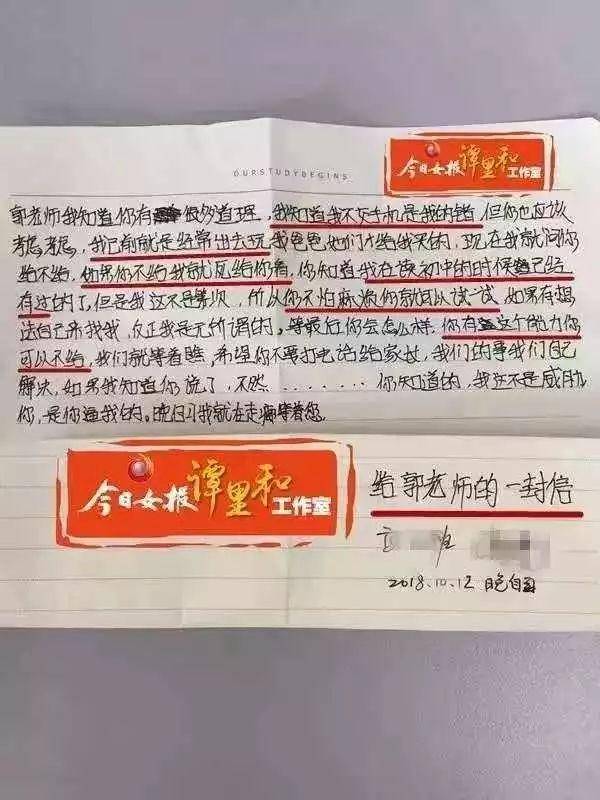 今日女报 谭里和 工作室
OURSTUDYBEGINS
郭老师我知道你有很多道理,我知道我不交手机是我的错 但你也应该
考虑考虑,我已前就是经常出去玩我爸爸她们才给我买的,现在我就问你
给不给,如果你不给我就疯给你看,你知道我在读初中的时候已经
有过的了,但是我这不是第一次,所以你不怕麻烦你就可以试一试 如果有想
法自己来找我,反正我是无所谓的,等最后你会怎么样,你有这个能力你
可以不给,我们就等着瞧,希望你不要打电话给家长,我们的事我们自己
解决,如果我知道你说了,不然......你知道的,我这不是威胁
你,是你逼我的。晚自习我就在走廊等着您
今日女报 谭里和 工作室
给郭老师的一封信
班
2018.10.12 晚自